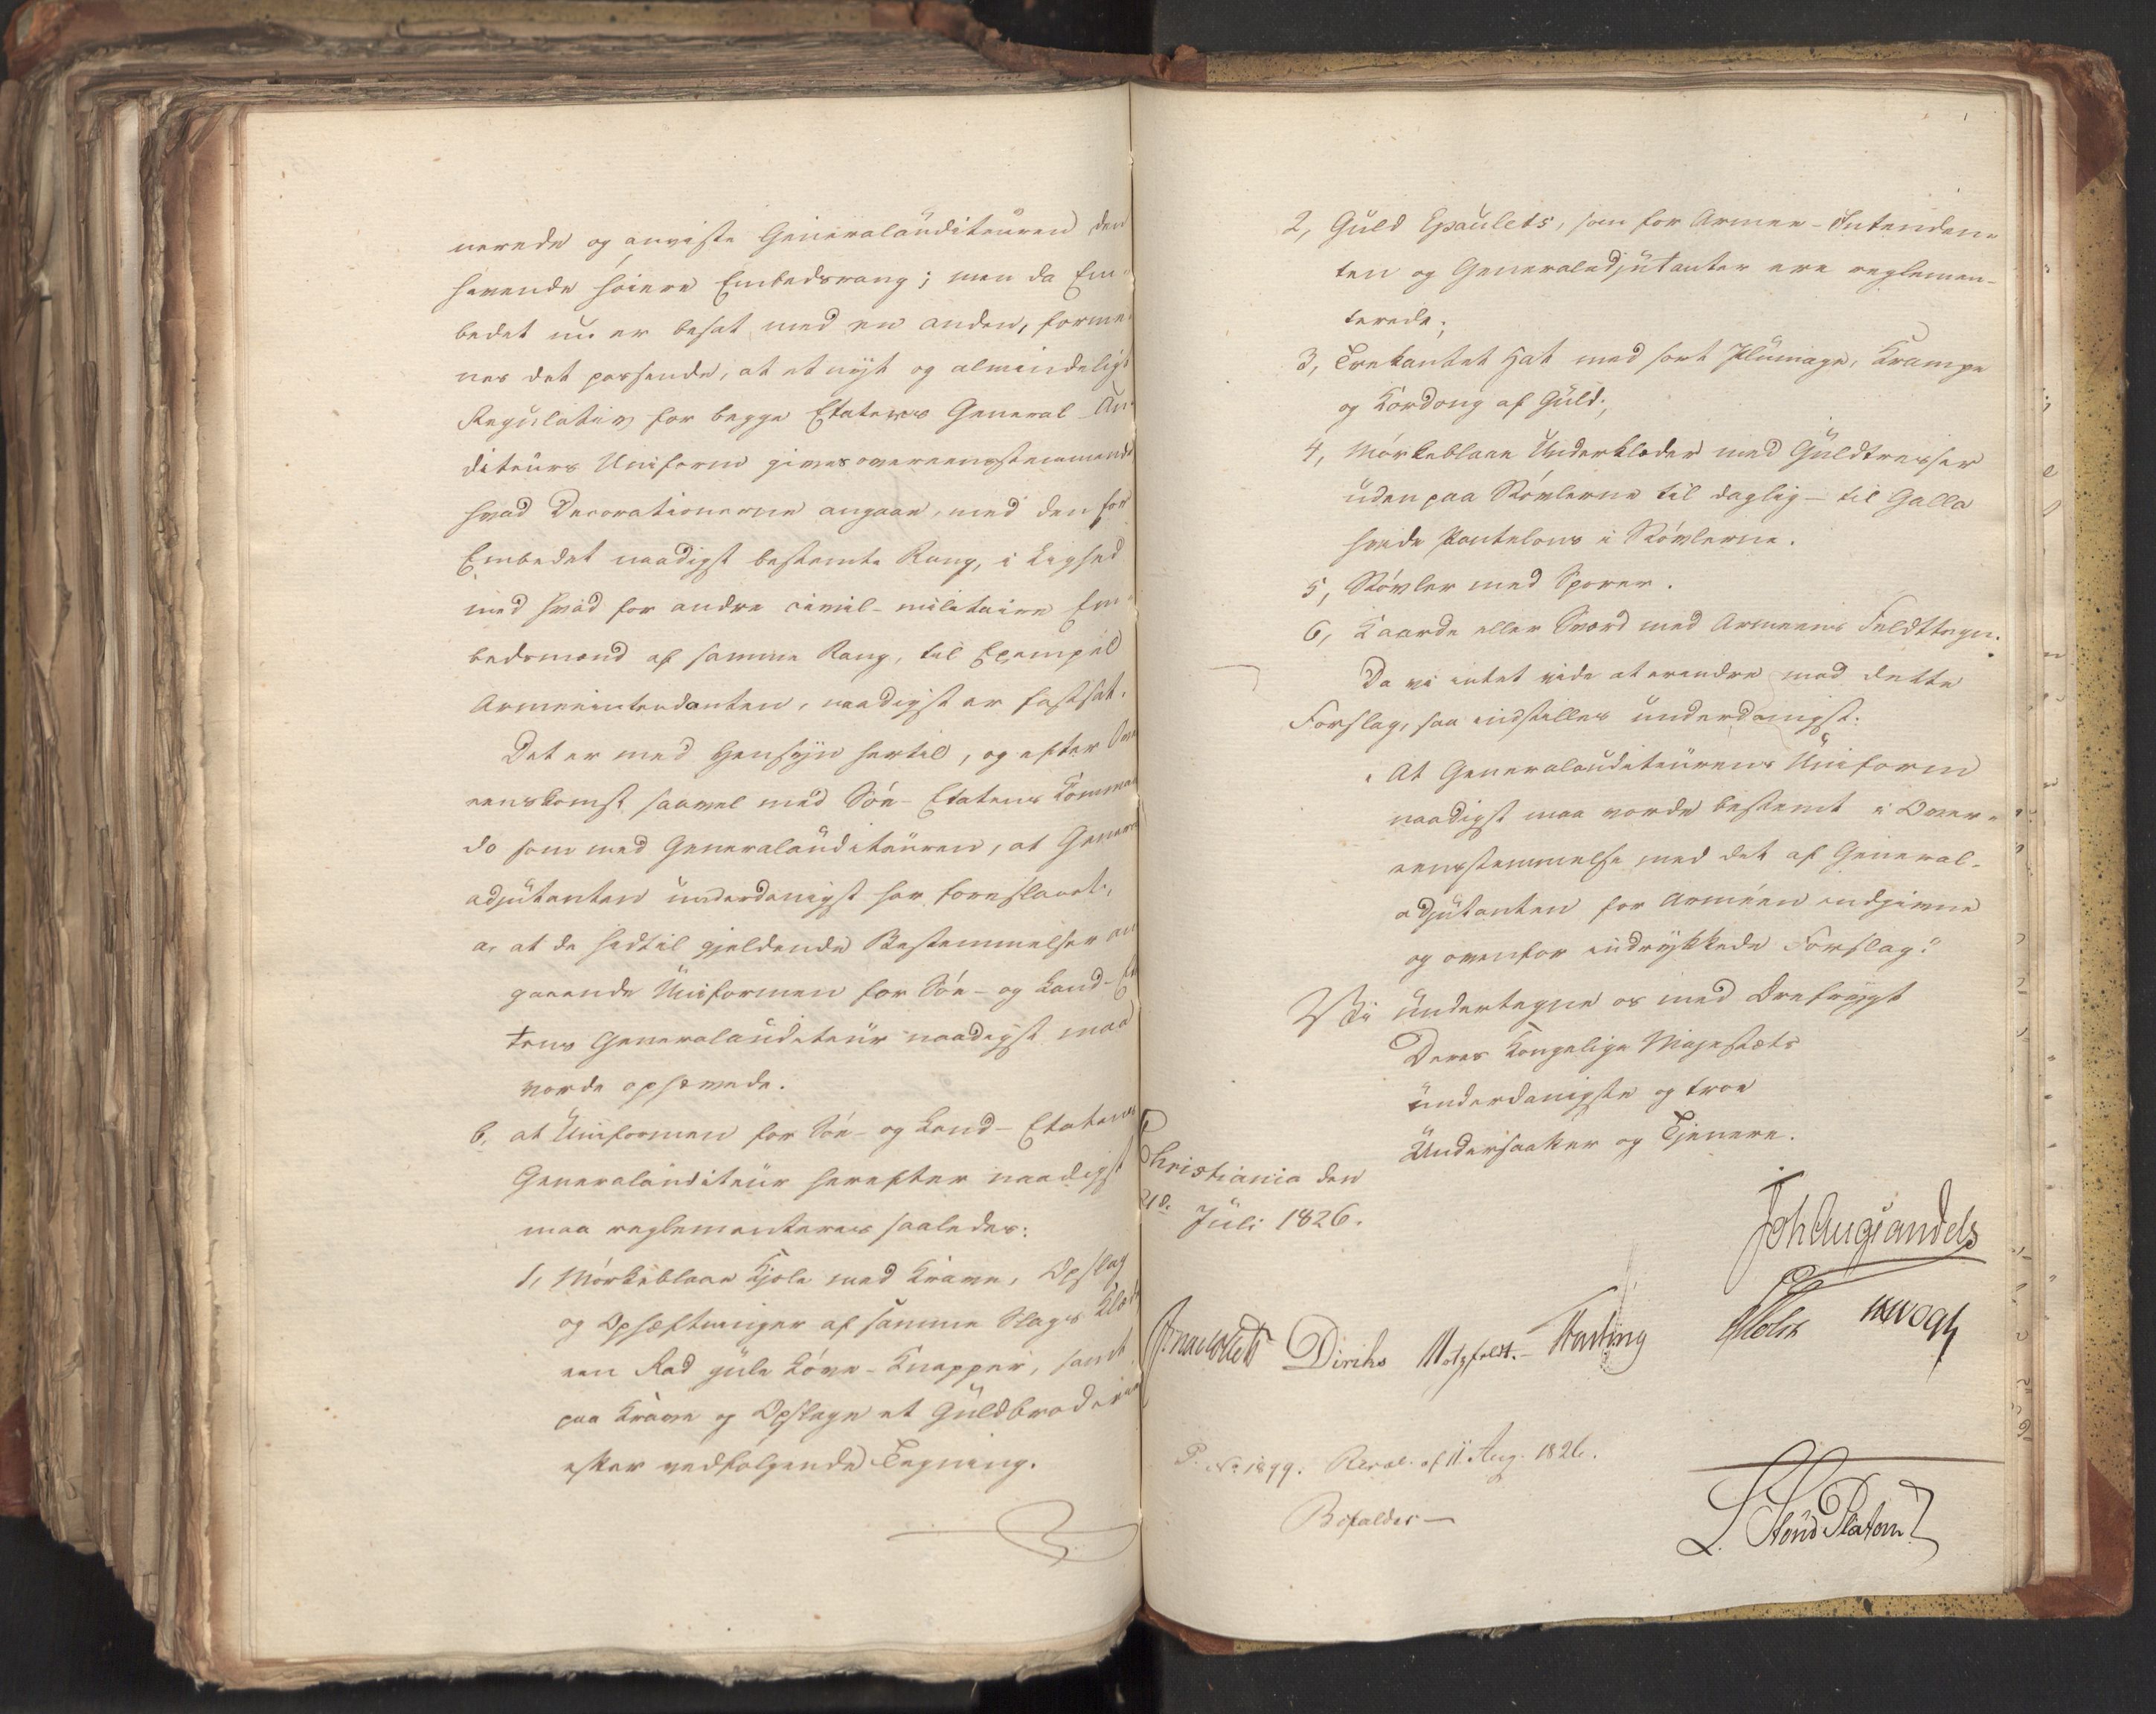 nerede og anviste Generalauditeuren den
havende høiere Embedsrang; men da Em-
bedet nu er besat med en anden, forme-
nes det passende, at et nyt og almindeligt
Regulativ for begge Etaters General-Au-
diteurs Uniform gives overeensstemmende
hvad Decorationerne angaae, med den for
Embedet naadigst bestemte Rang, i Lighed
med hvad for andre civil-militaire Em-
bedsmænd af samme Rang, til Exempel
Armeeintendanten, naadigst er fastsat.
Det er med Hensyn hertil, og efter Over
eenskomst saavel med Søe-Etatens Komman
do som med Generalauditeuren, at General
adjutanten underdanigst har foreslaaet,
a, at de hidtil gjeldende Bestemmelser an
gaaende Uniformen for Søe- og Land-Eta
tens Generalauditeur naadigst maa
vorde ophævede.
b, at Uniformen for Søe- og Land-Etatens
Generalauditeur herefter naadigst
maa reglementeres saaledes:
1, Mørkeblaae Kjole med Krave, Opslag
og Ophæftninger af samme Slags Klæde
een Rad gule Løve-Knapper, samt
paa Krave og Opslage et Guldbroderie
efter vedfølgende Tegning.
2, Guld Epaulets, som for Armee-Intendan-
ten og Generaladjutanter ere reglemen-
terede;
3, Trekantet Hat med sort Plümage, Krampe
og Kordong af Guld;
4, Mørkeblaae Underklæder med Guldtresser
uden paa Støvlerne til daglig - til Galla
hvide Pantelons i Støvlerne.
5, Støvler med Sporer.
6, Kaarde eller Sværd med Armeens Feldttegn.
Da vi intet vide at erindre mod dette
Forslag, saa indstilles underdanigst:
"At Generalauditeurens Uniform
naadigst maa vorde bestemt i Over-
eensstemmelse med det af General-
adjutanten for Armeen indgivne
og ovenfor indrykkede Forslag."
Vi undertegne os med Ærefrygt
Deres Kongelige Majestæts
underdanigste og troe
Undersaatter og Tjenere.
Christiania den
21de Juli 1826.
Joh Aug Sandels
Collett Diriks Motzfeldt. Fasting Holst Vogh
P. No 1899. Resol. af 11 Aug. 1826.
Bifaldes -
L. Stoud Platou